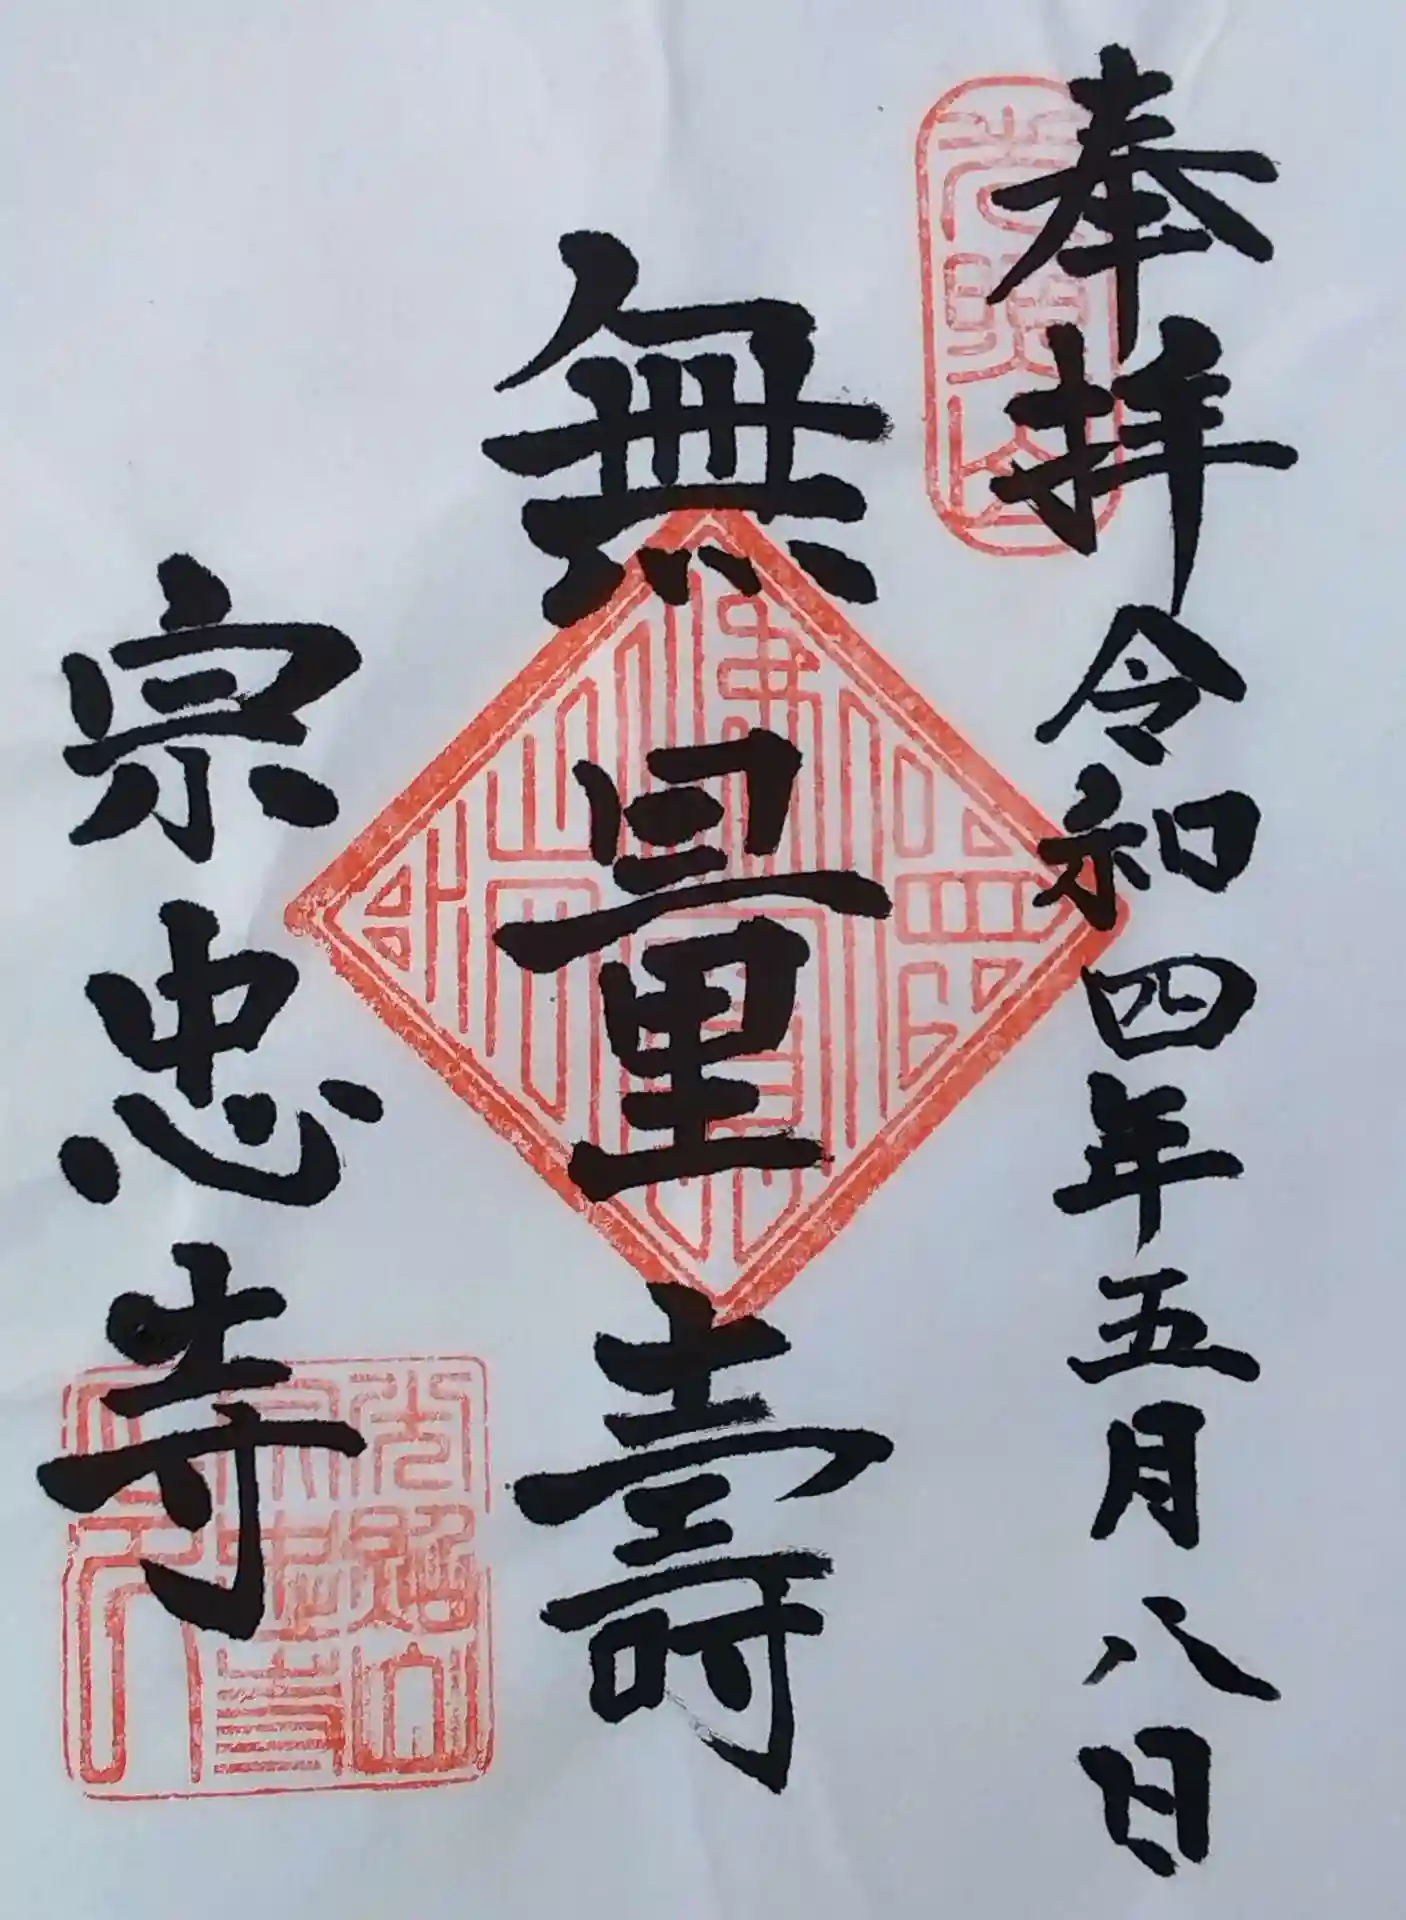 奉拜令和四年五月八日
無量壽
宗忠寺